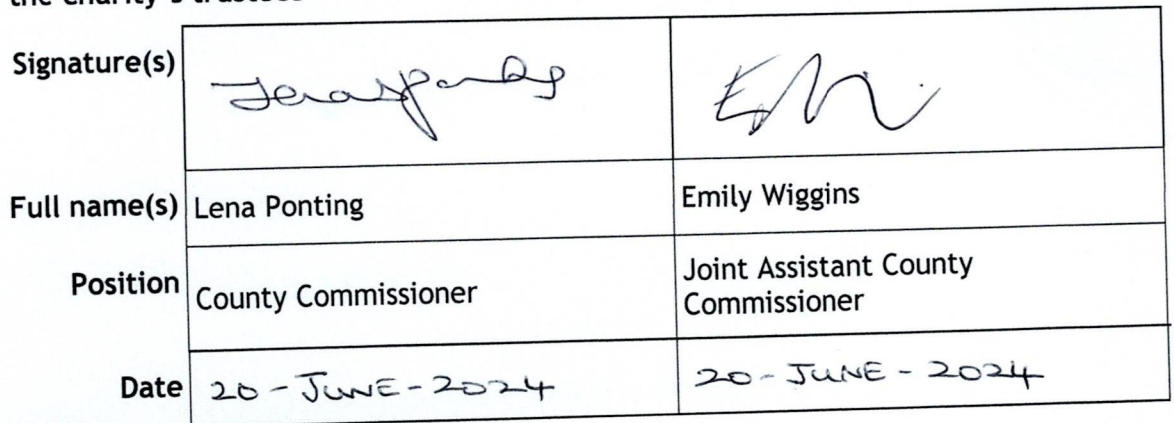 the charity's trustees
Signature(s)
Full name(s) Lena Ponting Emily Wiggins
Position County Commissioner Joint Assistant County
Commissioner
Date 20-JUNE-2024 20-JUNE-2024